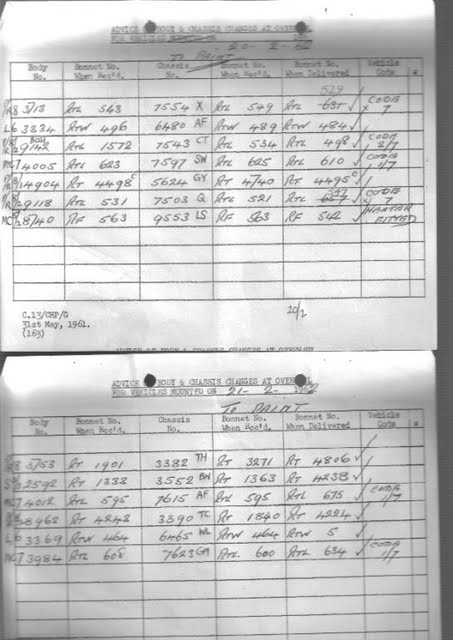 ADVICE BODY & CHASSIS CHANGES AT OVER
FOR VEHICLES MOUNTED ON 20-2-62
To PAINT
Body No. Bonnet No. When Rec'd. Chassis No. Bonnet No. When Rec'd. Bonnet No. When Delivered Vehicle Code
529
R8 3/13 RTL 543 7554 X RTL 549 RTL 631 ✓ CODE 7
L6 3234 RTW 496 6480 AF RTW 489 RTW 484 ✓
9142 RTL 1572 7543 CT RTL 534 RTL 498 ✓ CODE 2/7
7 4005 RTL 623 7597 SW RTL 625 RTL 610 ✓ CODE 1/7
14904 RT 4498 C 5624 GY RT 4140 RT 4495 C ✓
9118 RTL 531 7503 Q RTL 521 RTL 657 CODE 7
MC 8/40 RF 563 9553 LS RF 563 RF 542 ✓ HEATER FITTED
C.13/CHP/G
31st May, 1961.
(163)
20/2
ADVICE BODY & CHASSIS CHANGES AT OVER
FOR VEHICLES MOUNTED ON 21-2-
To PAINT
Body No. Bonnet No. When Rec'd. Chassis No. Bonnet No. When Rec'd. Bonnet No. When Delivered Vehicle Code
R8 3/53 RT 1901 3382 TH RT 3271 RT 4806 ✓
2592 RT 1333 3552 BN RT 1363 RT 4238 ✓
7 4012 RTL 595 7615 AF RTL 595 RTL 675 ✓ CODE 1/7
8962 RT 4242 3390 TC RT 1840 RT 4224 ✓
L6 3369 RTW 464 6465 WL RTW 464 RTW 5 ✓
7 3984 RTL 608 7623 GM RTL 600 RTL 634 ✓ CODE 1/7